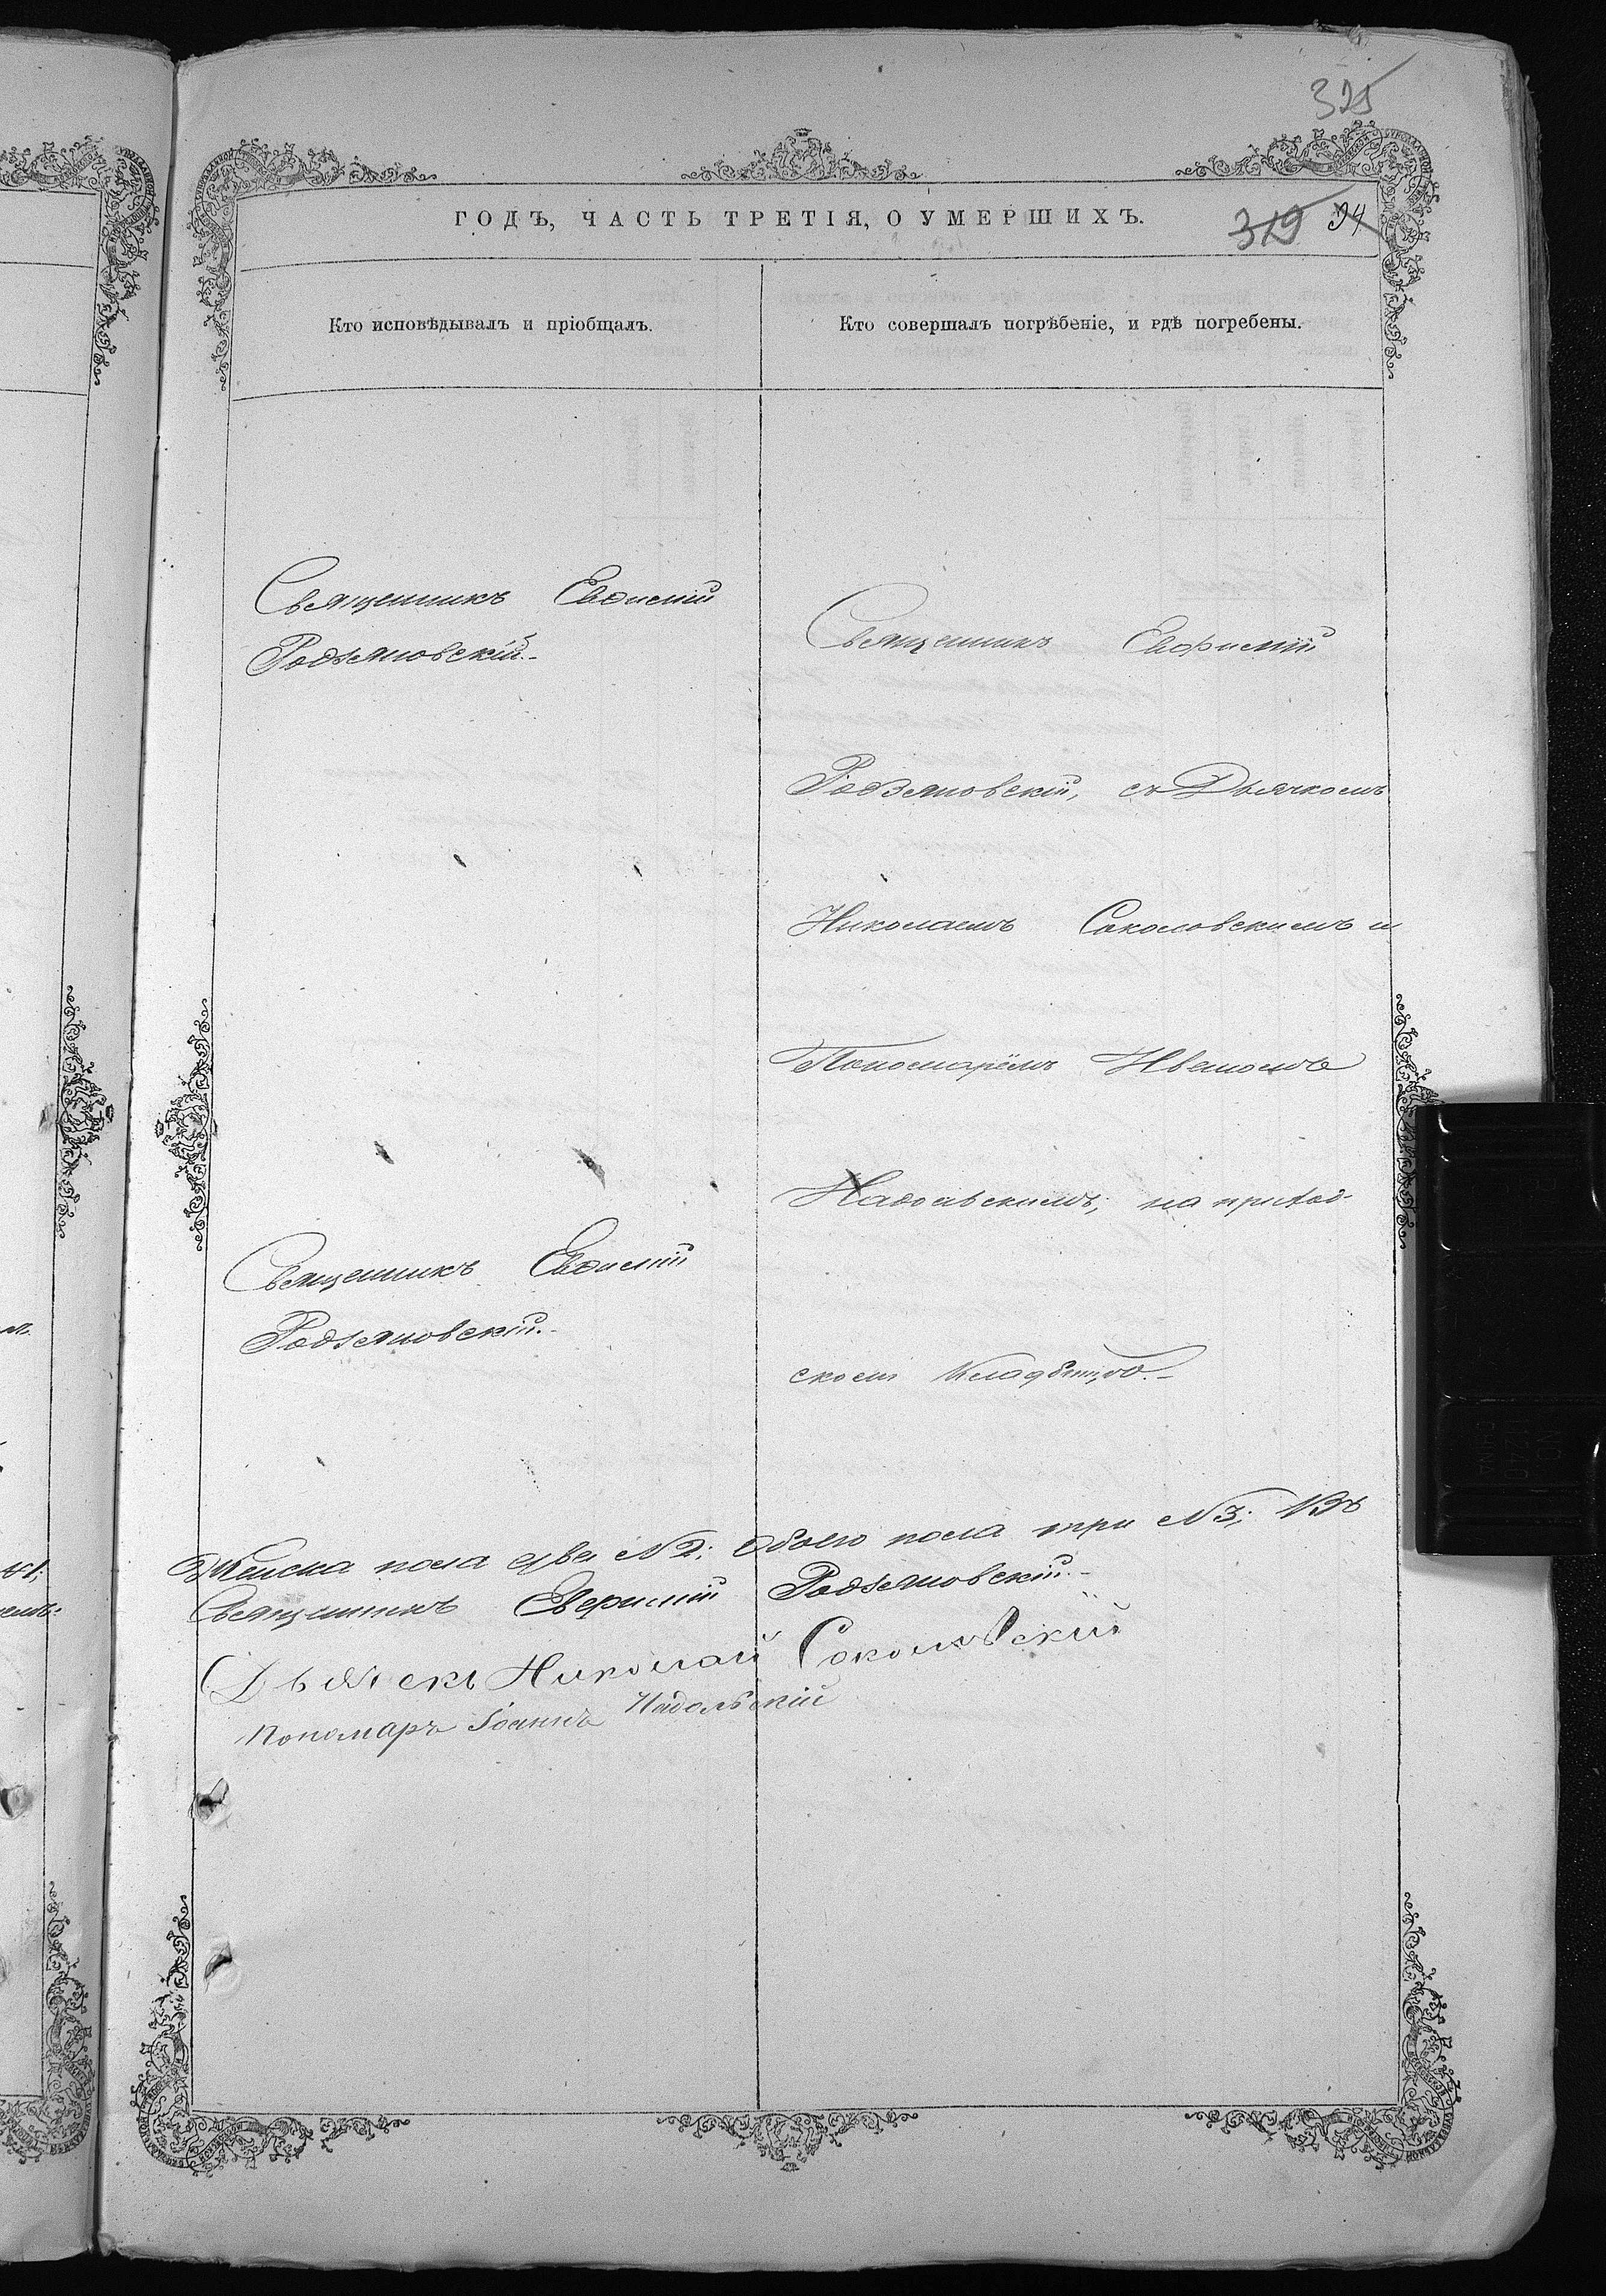 325
ГОДЪ, ЧАСТЬ ТРЕТІЯ, О УМЕРШИХЪ.
319 94
Кто исповѣдывалъ и пріобщалъ.
Кто совершалъ погрѣбеніе, и гдѣ погребены.
Священникъ Евфимій
Родзяновскій.-
Священникъ Евфимій
Родзяновскій, съ Дьячкомъ
Николаемъ Соколовскимъ и
Пономарёмъ Иваномъ
Надольскимъ, на приход-
скомъ кладбищѣ.-
Священникъ Евфимій
Родзяновскій.-
Женска пола два №2; Обоего пола три №3; Въ
Священникъ Евфимій Родзяновскій.-
Дьячекъ Николай Соколовскій
Пономаръ Іоаннъ Надольскій